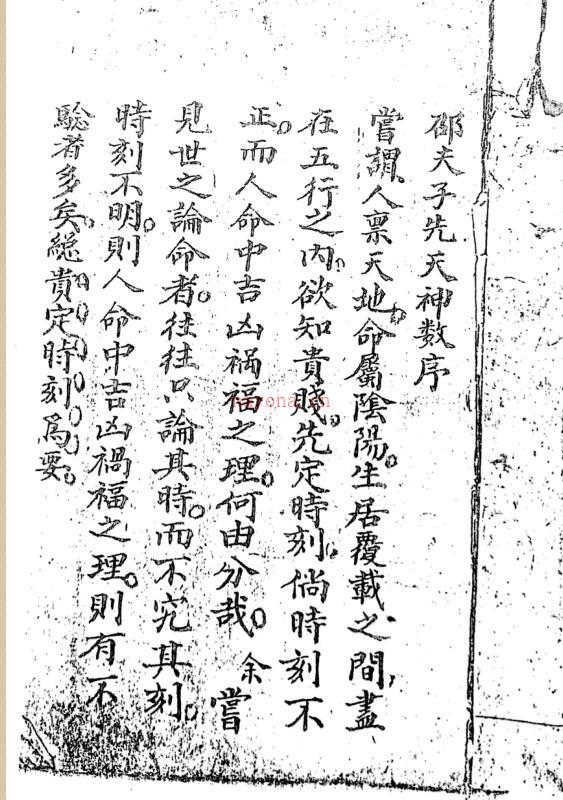 邵夫子先天神数序
嘗謂人禀天地。命屬陰陽。生居覆載之間，盡
在五行之内。欲知貴賤。先定時刻。倘時刻不
正。而人命中吉凶禍福之理。何由分哉。余嘗
見世之論命者。往往只論其時。而不究其刻。
時刻不明。則人命中吉凶禍福之理。則有不
騐者多矣。總貴定時刻為要。